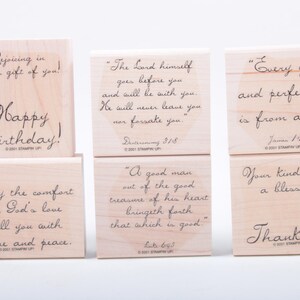 Rejoicing in
gift of you!
Happy
Birthday!
© 2001 STAMPIN' UP!
"The Lord himself
goes before you
and will be with you.
He will never leave you
nor forsake you."
Deuteronomy 31:8
© 2001 STAMPIN' UP!
"Every
and perfe
is from a
James 1
© 2001 STAMPIN' UP!
the comfort
God's love
ill you with
e and peace.
© 2001 STAMPIN' UP!
"A good man
out of the good
treasure of his heart
bringeth forth
that which is good"
Luke 6:45
© 2001 STAMPIN' UP!
Your kind
a bless
Thank
© 2001 STAMPIN' UP!